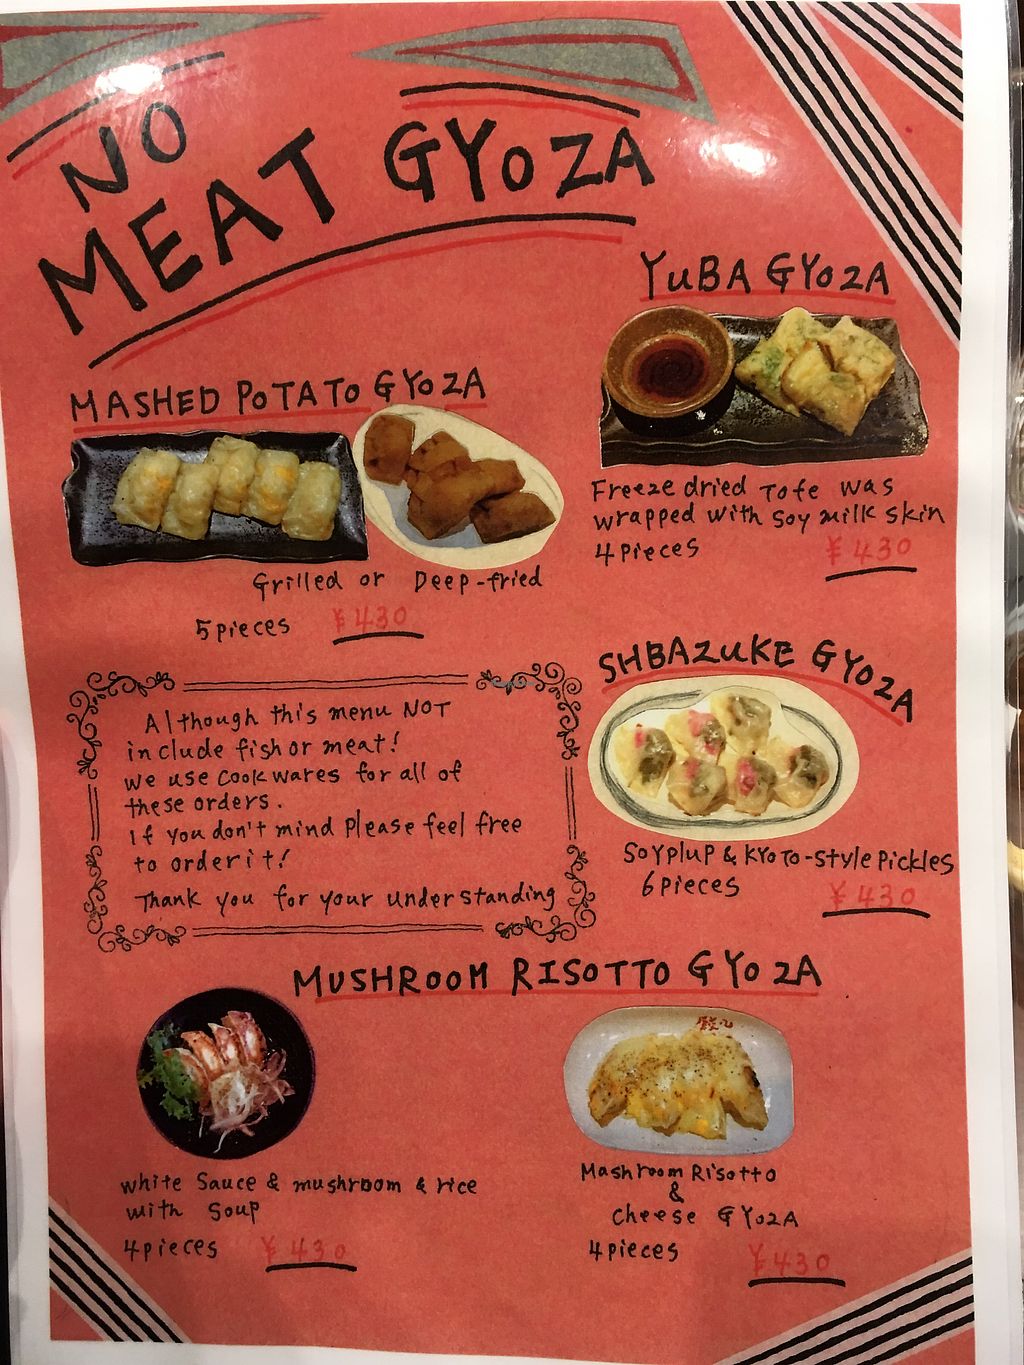 NO
MEAT GYOZA
YUBA GYOZA
Freeze dried Tofe was
wrapped with soy milk skin
4pieces ¥430
MASHED POTATO GYOZA
Grilled or Deep-fried
5pieces ¥430
SHBAZUKE GYOZA
SOYPlUP & KYOTO-StylePickles
6pieces ¥430
Although this menu NOT
include fish or meat!
We use cookwares for all of
these orders.
If you don't mind Please feel free
to order it!
Thank you for your understanding
MUSHROOM RISOTTO GYOZA
white Sauce & mushroom & rice
with Soup
4pieces ¥430
Mashroom Risotto
&
cheese GYOZA
4pieces ¥430